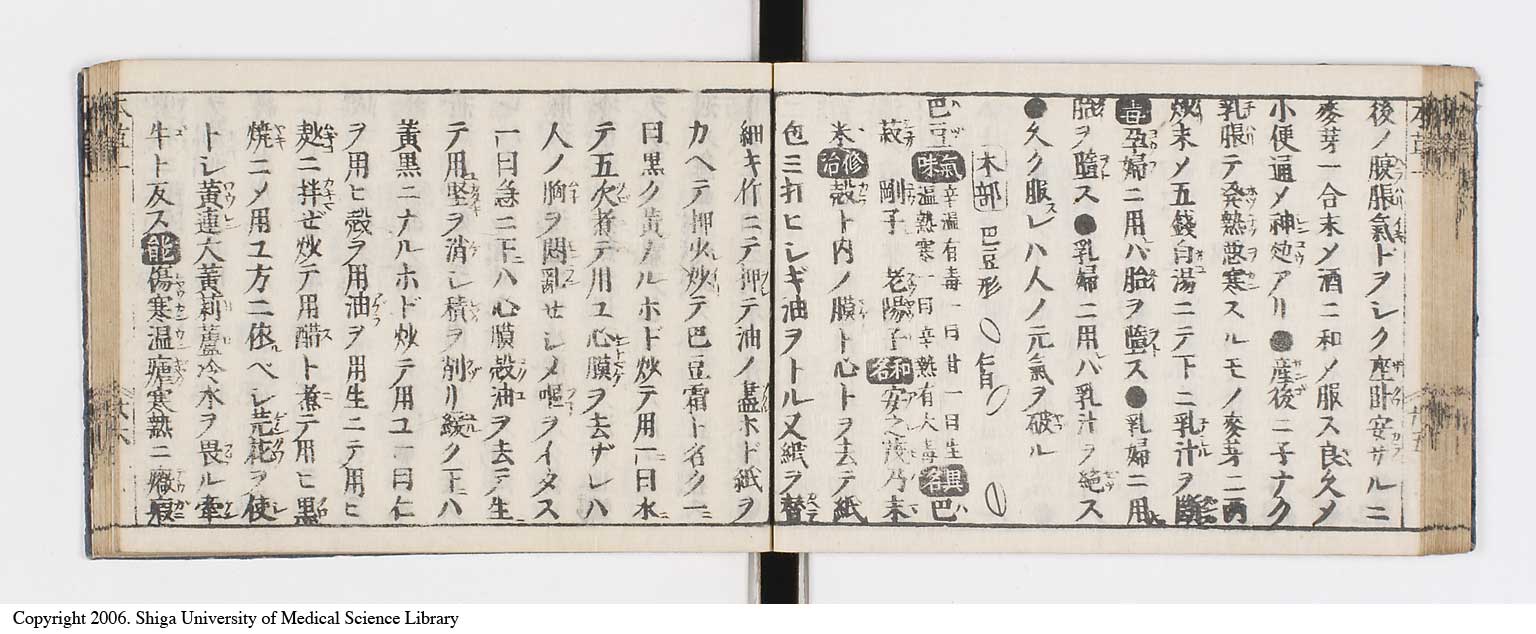 後ノ腹脹氣ドヲシク座卧安サルニ
麥芽一合末メ酒ニ和メ服ス良久メ
小便通メ神効アリ●産後ニ子ナク
乳脹テ発熱悪寒スルモノ麥芽二両
炒末メ五錢白湯ニテ下ニ乳汁ヲ斷
毒孕婦ニ用バ胎ヲ墮ス●乳婦ニ用
胎ヲ墮ス●乳婦ニ用バ乳汁ヲ絶ス
●久ク服レハ人ノ元氣ヲ破ル
木部 巴豆形 仁皆
巴豆 氣味 辛温有毒一曰甘一曰生温熟寒一曰辛熱有大毒 異名 巴
菽 剛子 老陽子 和名 安之茂乃末
米 修治 殻ト内ノ膜ト心トヲ去テ紙
包ミ打ヒシギ油ヲトル又紙ヲ替
細キ竹ニテ押テ油ノ盡ホド紙ヲ
カヘテ押火炒テ巴豆霜ト名ク一
曰黒ク黄ナルホド炒テ用一曰水
テ五次煮テ用ユ心膜ヲ去ザレハ
人ノ胸ヲ悶乱セシメ嘔ヲイタス
一曰急ニ下ハ心膜殻油ヲ去テ生
テ用堅ヲ消シ積ヲ削リ緩ク下ハ
黄黒ニナルホド炒テ用ユ一曰仁
ヲ用ヒ殻ヲ用油ヲ用生ニテ用ヒ
麩ニ拌ぜ炒テ用醋ト煮テ用ヒ黒
焼ニメ用ユ方ニ依ベシ芫花ヲ使
トレ黄連大黄藜蘆冷水ヲ畏ル牽
牛ト反ス 能 傷寒温瘧寒熱ニ癥瘕
Copyright 2006. Shiga University of Medical Science Library